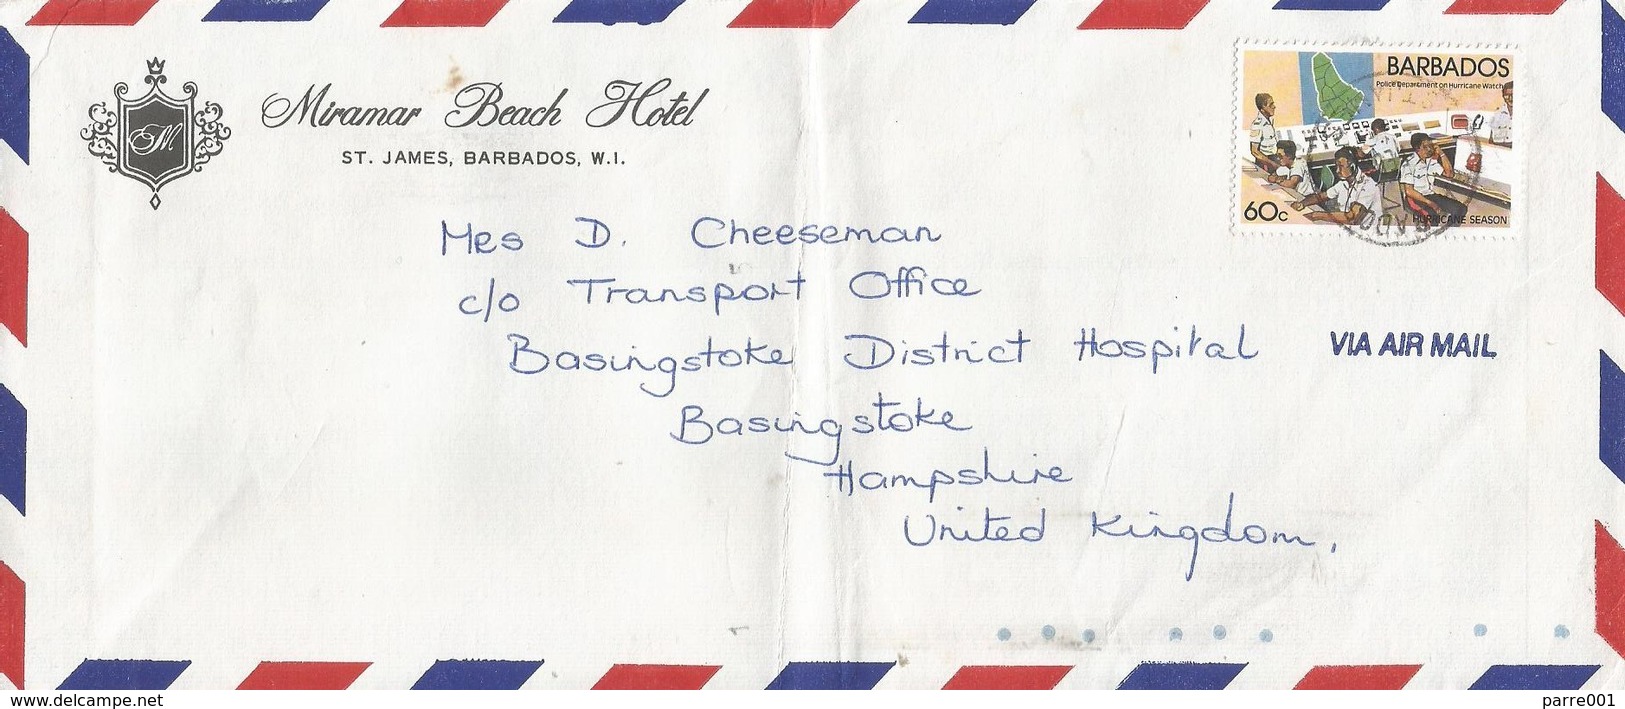 Miramar Beach Hotel
ST. JAMES, BARBADOS, W.I.
M
BARBADOS
Police Department on Hurricane Watch
60c
HURRICANE SEASON
Mrs D. Cheeseman
c/o Transport Office
Basingstoke District Hospital
VIA AIR MAIL
Basingstoke
Hampshire
United Kingdom,
www.delcampe.net
parre001